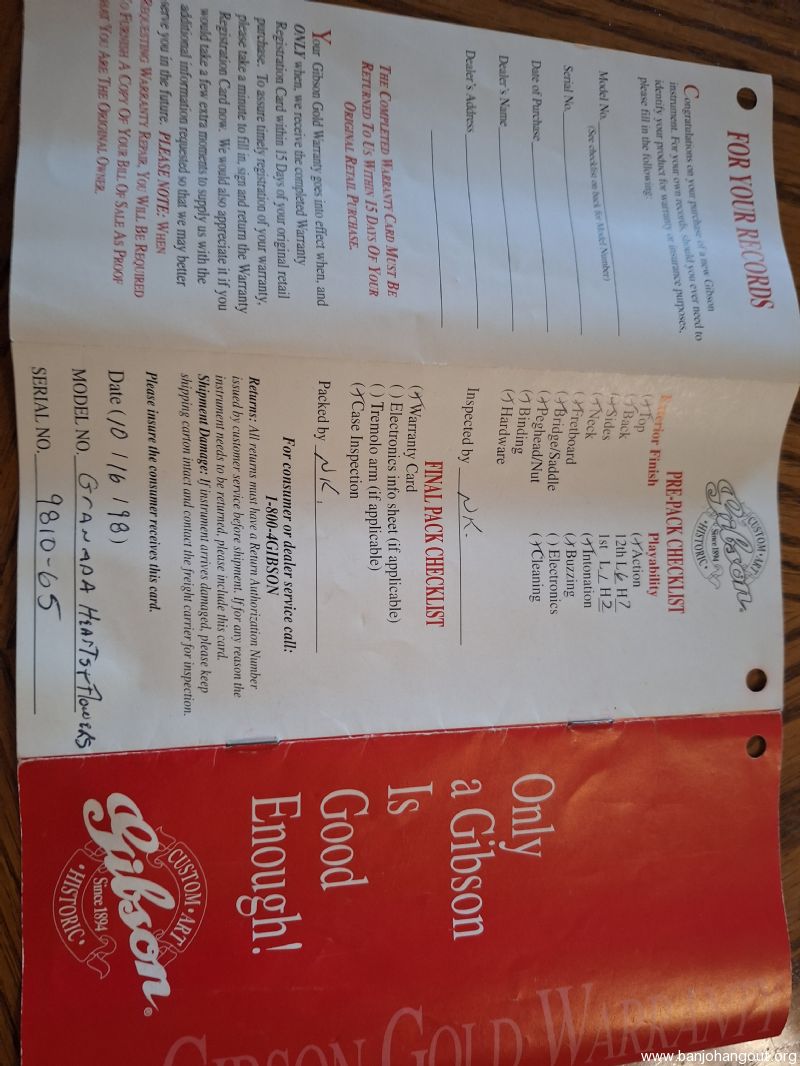 FOR YOUR RECORDS
Congratulations on your purchase of a new Gibson
instrument. For your own records, should you ever need to
identify your product for warranty or insurance purposes,
please fill in the following:
Model No.
(See checklist on back for Model Number)
Serial No.
Date of Purchase
Dealer's Name
Dealer's Address
THE COMPLETED WARRANTY CARD MUST BE
RETURNED TO US WITHIN 15 DAYS OF YOUR
ORIGINAL RETAIL PURCHASE.
Your Gibson Gold Warranty goes into effect when, and
ONLY when, we receive the completed Warranty
Registration Card within 15 Days of your original retail
purchase. To assure timely registration of your warranty,
please take a minute to fill in, sign and return the Warranty
Registration Card now. We would also appreciate it if you
would take a few extra moments to supply us with the
additional information requested so that we may better
serve you in the future. PLEASE NOTE: WHEN
REQUESTING WARRANTY REPAIR, YOU WILL BE REQUIRED
TO FURNISH A COPY OF YOUR BILL OF SALE AS PROOF
THAT YOU ARE THE ORIGINAL OWNER.
Gibson
CUSTOM • ART
Since 1894
HISTORIC •
PRE-PACK CHECKLIST
Exterior Finish
(✓) Top
(✓) Back
(✓) Sides
(✓) Neck
(✓) Fretboard
(✓) Bridge/Saddle
(✓) Peghead/Nut
(✓) Binding
(✓) Hardware
Playability
(✓) Action
12th L 6 H 7
1st L 1 H 2
(✓) Intonation
(✓) Buzzing
( ) Electronics
(✓) Cleaning
Inspected by NK.
FINAL PACK CHECKLIST
(✓) Warranty Card
( ) Electronics info sheet (if applicable)
( ) Tremolo arm (if applicable)
(✓) Case Inspection
Packed by NK.
For consumer or dealer service call:
1-800-4GIBSON
Returns: All returns must have a Return Authorization Number
issued by customer service before shipment. If for any reason the
instrument needs to be returned, please include this card.
Shipment Damage: If instrument arrives damaged, please keep
shipping carton intact and contact the freight carrier for inspection.
Please insure the consumer receives this card.
Date (10 /16 /98)
MODEL NO. GRANADA HEARTS & Flowers
SERIAL NO. 9810-65
Only
a Gibson
Is
Good
Enough!
CUSTOM • ART
Gibson®
Since 1894
• HISTORIC •
GIBSON GOLD WARRANTY
www.banjohangout.org